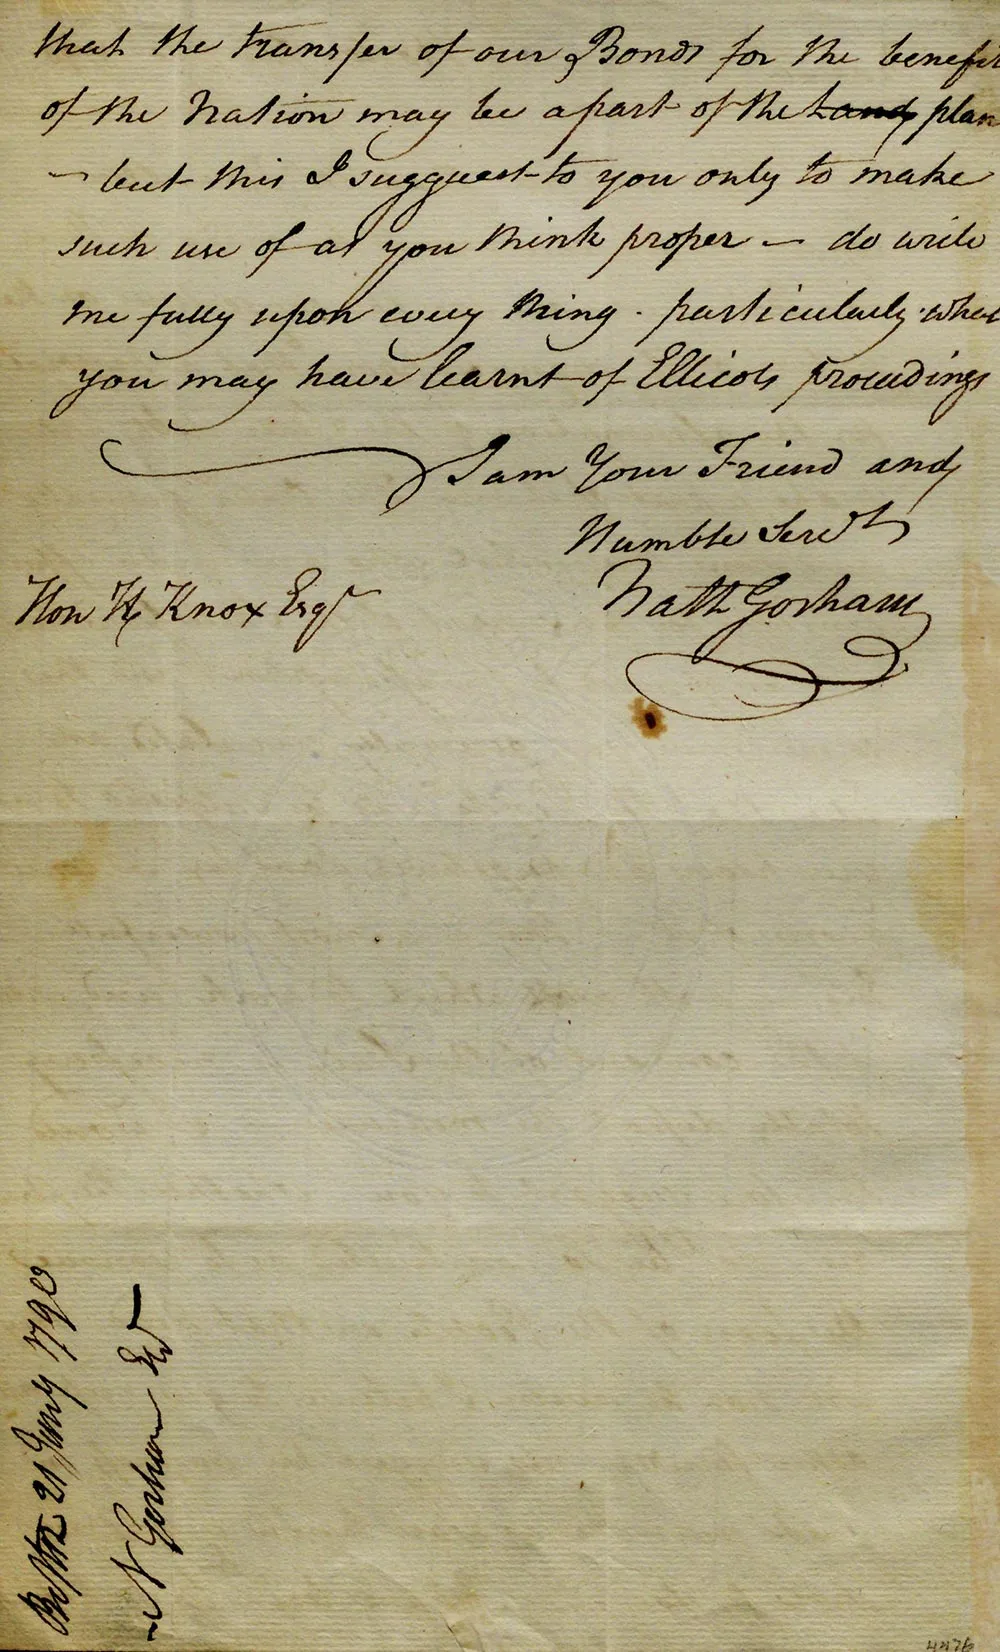 that the transfer of our Bonds for the benefit
of the Nation may be a part of the plan
— but this I sugguest to you only to make
such use of as you think proper — do write
me fully upon every thing. particularly what
you may have learnt of Ellicots procedings
I am Your Friend and
Humble Servt
Hon H Knox Esqr
Nath Gorham
Boston 21 Jany 1790
N Gorham
4476